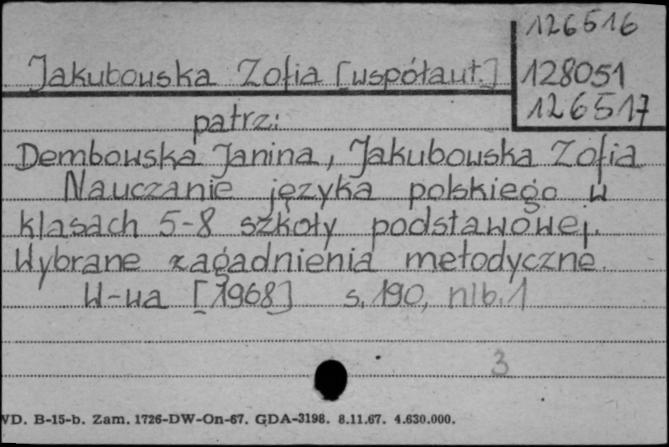 126516
Jakubowska Zofia [współaut.] 128051
126517
patrz:
Dembowska Janina, Jakubowska Zofia
Nauczanie języka polskiego w
klasach 5-8 szkoły podstawowej.
Wybrane zagadnienia metodyczne.
W-wa [1968] s. 190, nlb. 1
3
WD. B-15-b. Zam. 1726-DW-On-67. GDA-3198. 8.11.67. 4.630.000.